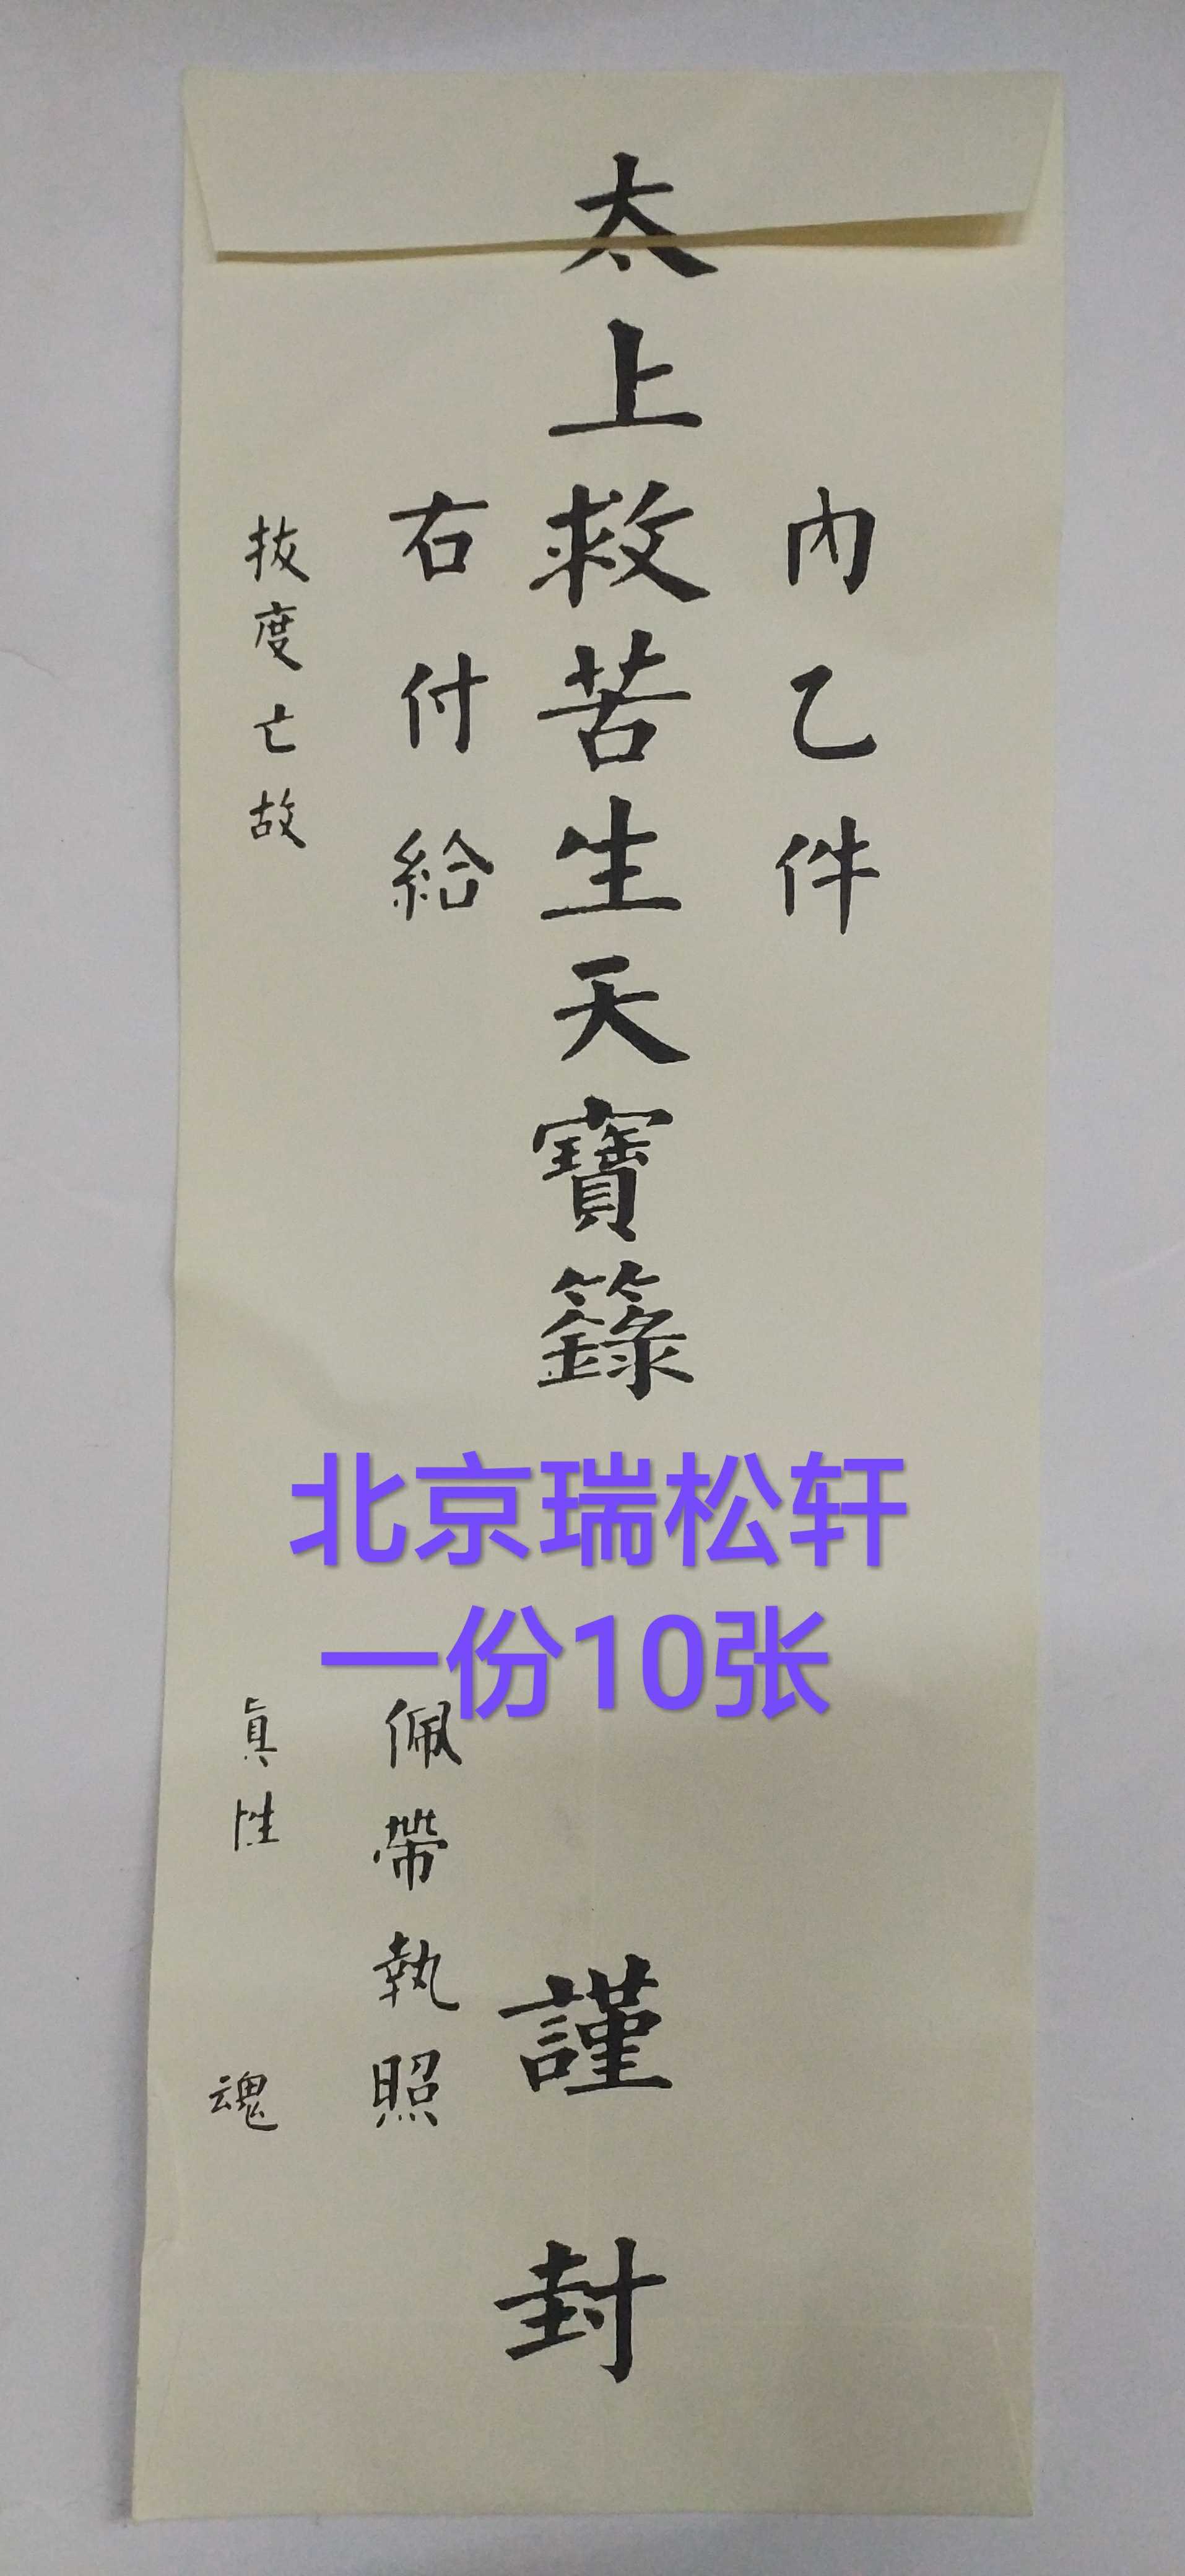 內乙件
太上救苦生天寶籙
謹封
右付給
佩帶執照
拔度亡故
眞性
魂
北京瑞松轩
一份10张